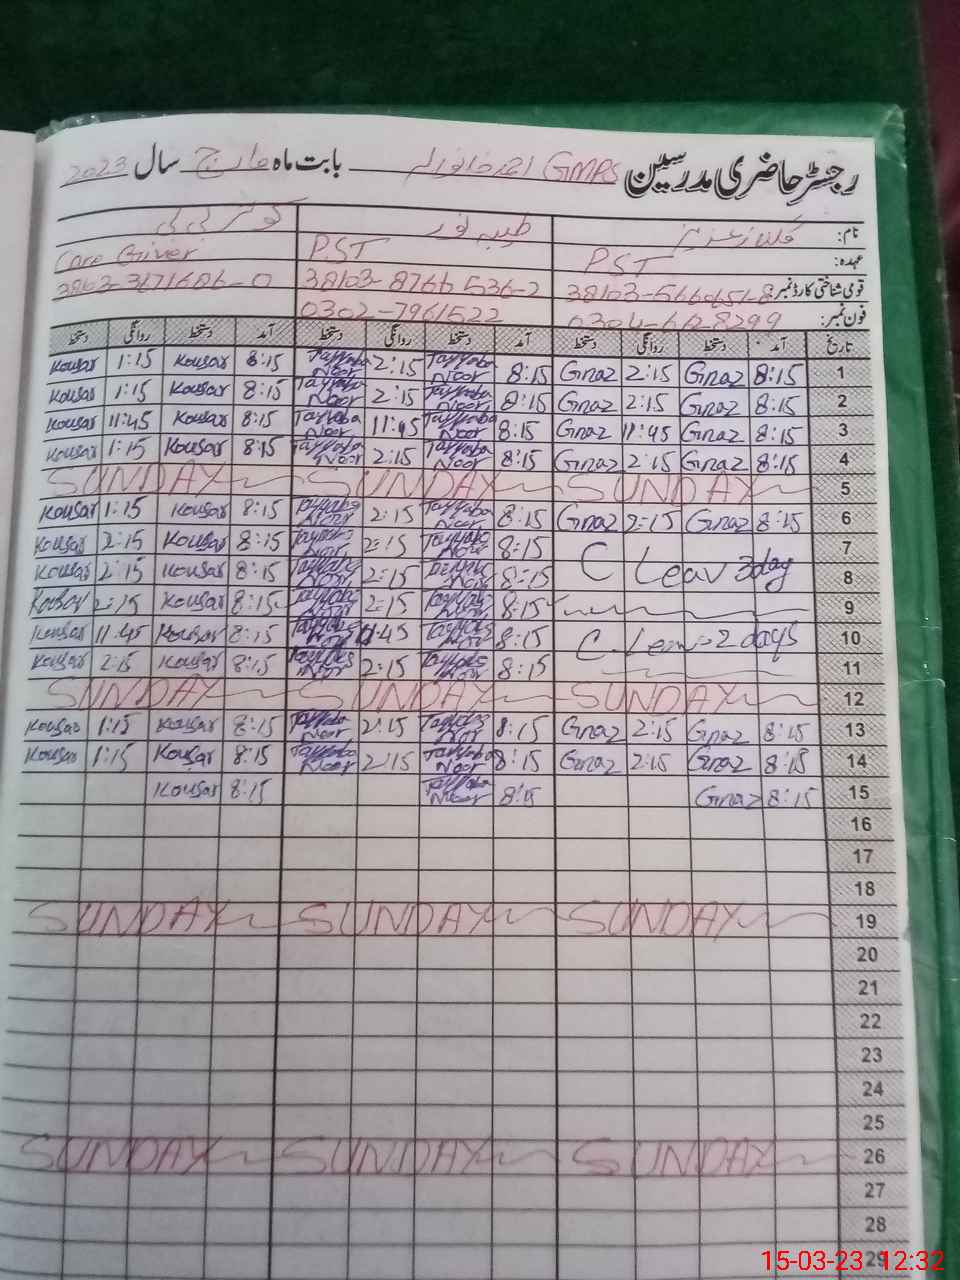 رجسٹر حاضری مدرسین GMPS احمد خانوالہ بابت ماہ مارچ سال 2023
نام: گلناز عزیز طیبہ نور کوثر بی بی
عہدہ: PST PST Care Giver
قومی شناختی کارڈ نمبر: 38103-8766536-2
فون نمبر: 0302-7961522
تاریخ آمد دستخط روانگی دستخط آمد دستخط روانگی دستخط آمد دستخط روانگی دستخط
1 8:15 Gnaz 2:15 Gnaz 8:15 Tayyaba Noor 2:15 Tayyaba Noor 8:15 Kousar 1:15 Kousar
2 8:15 Gnaz 2:15 Gnaz 8:15 Tayyaba Noor 2:15 Tayyaba Noor 8:15 Kousar 1:15 Kousar
3 8:15 Gnaz 11:45 Gnaz 8:15 Tayyaba Noor 11:45 Tayyaba Noor 8:15 Kousar 11:45 Kousar
4 8:15 Gnaz 2:15 Gnaz 8:15 Tayyaba Noor 2:15 Tayyaba Noor 8:15 Kousar 1:15 Kousar
5 SUNDAY SUNDAY SUNDAY
6 8:15 Gnaz 2:15 Gnaz 8:15 Tayyaba Noor 2:15 Tayyaba Noor 8:15 Kousar 1:15 Kousar
7 C Leav 3day 8:15 Tayyaba Noor 2:15 Tayyaba Noor 8:15 Kousar 2:15 Kousar
8 8:15 Tayyaba Noor 2:15 Tayyaba Noor 8:15 Kousar 2:15 Kousar
9 8:15 Tayyaba Noor 2:15 Tayyaba Noor 8:15 Kousar 2:15 Kousar
10 C. Leav 2 days 8:15 Tayyaba Noor 11:45 Tayyaba Noor 8:15 Kousar 11:45 Kousar
11 8:15 Tayyaba Noor 2:15 Tayyaba Noor 8:15 Kousar 2:15 Kousar
12 SUNDAY SUNDAY SUNDAY
13 8:15 Gnaz 2:15 Gnaz 8:15 Tayyaba Noor 2:15 Tayyaba Noor 8:15 Kousar 1:15 Kousar
14 8:15 Gnaz 2:15 Gnaz 8:15 Tayyaba Noor 2:15 Tayyaba Noor 8:15 Kousar 1:15 Kousar
15 8:15 Gnaz 8:15 Tayyaba Noor 8:15 Kousar
16
17
18
19 SUNDAY SUNDAY SUNDAY
20
21
22
23
24
25
26 SUNDAY SUNDAY SUNDAY
27
28
29
15-03-23 12:32